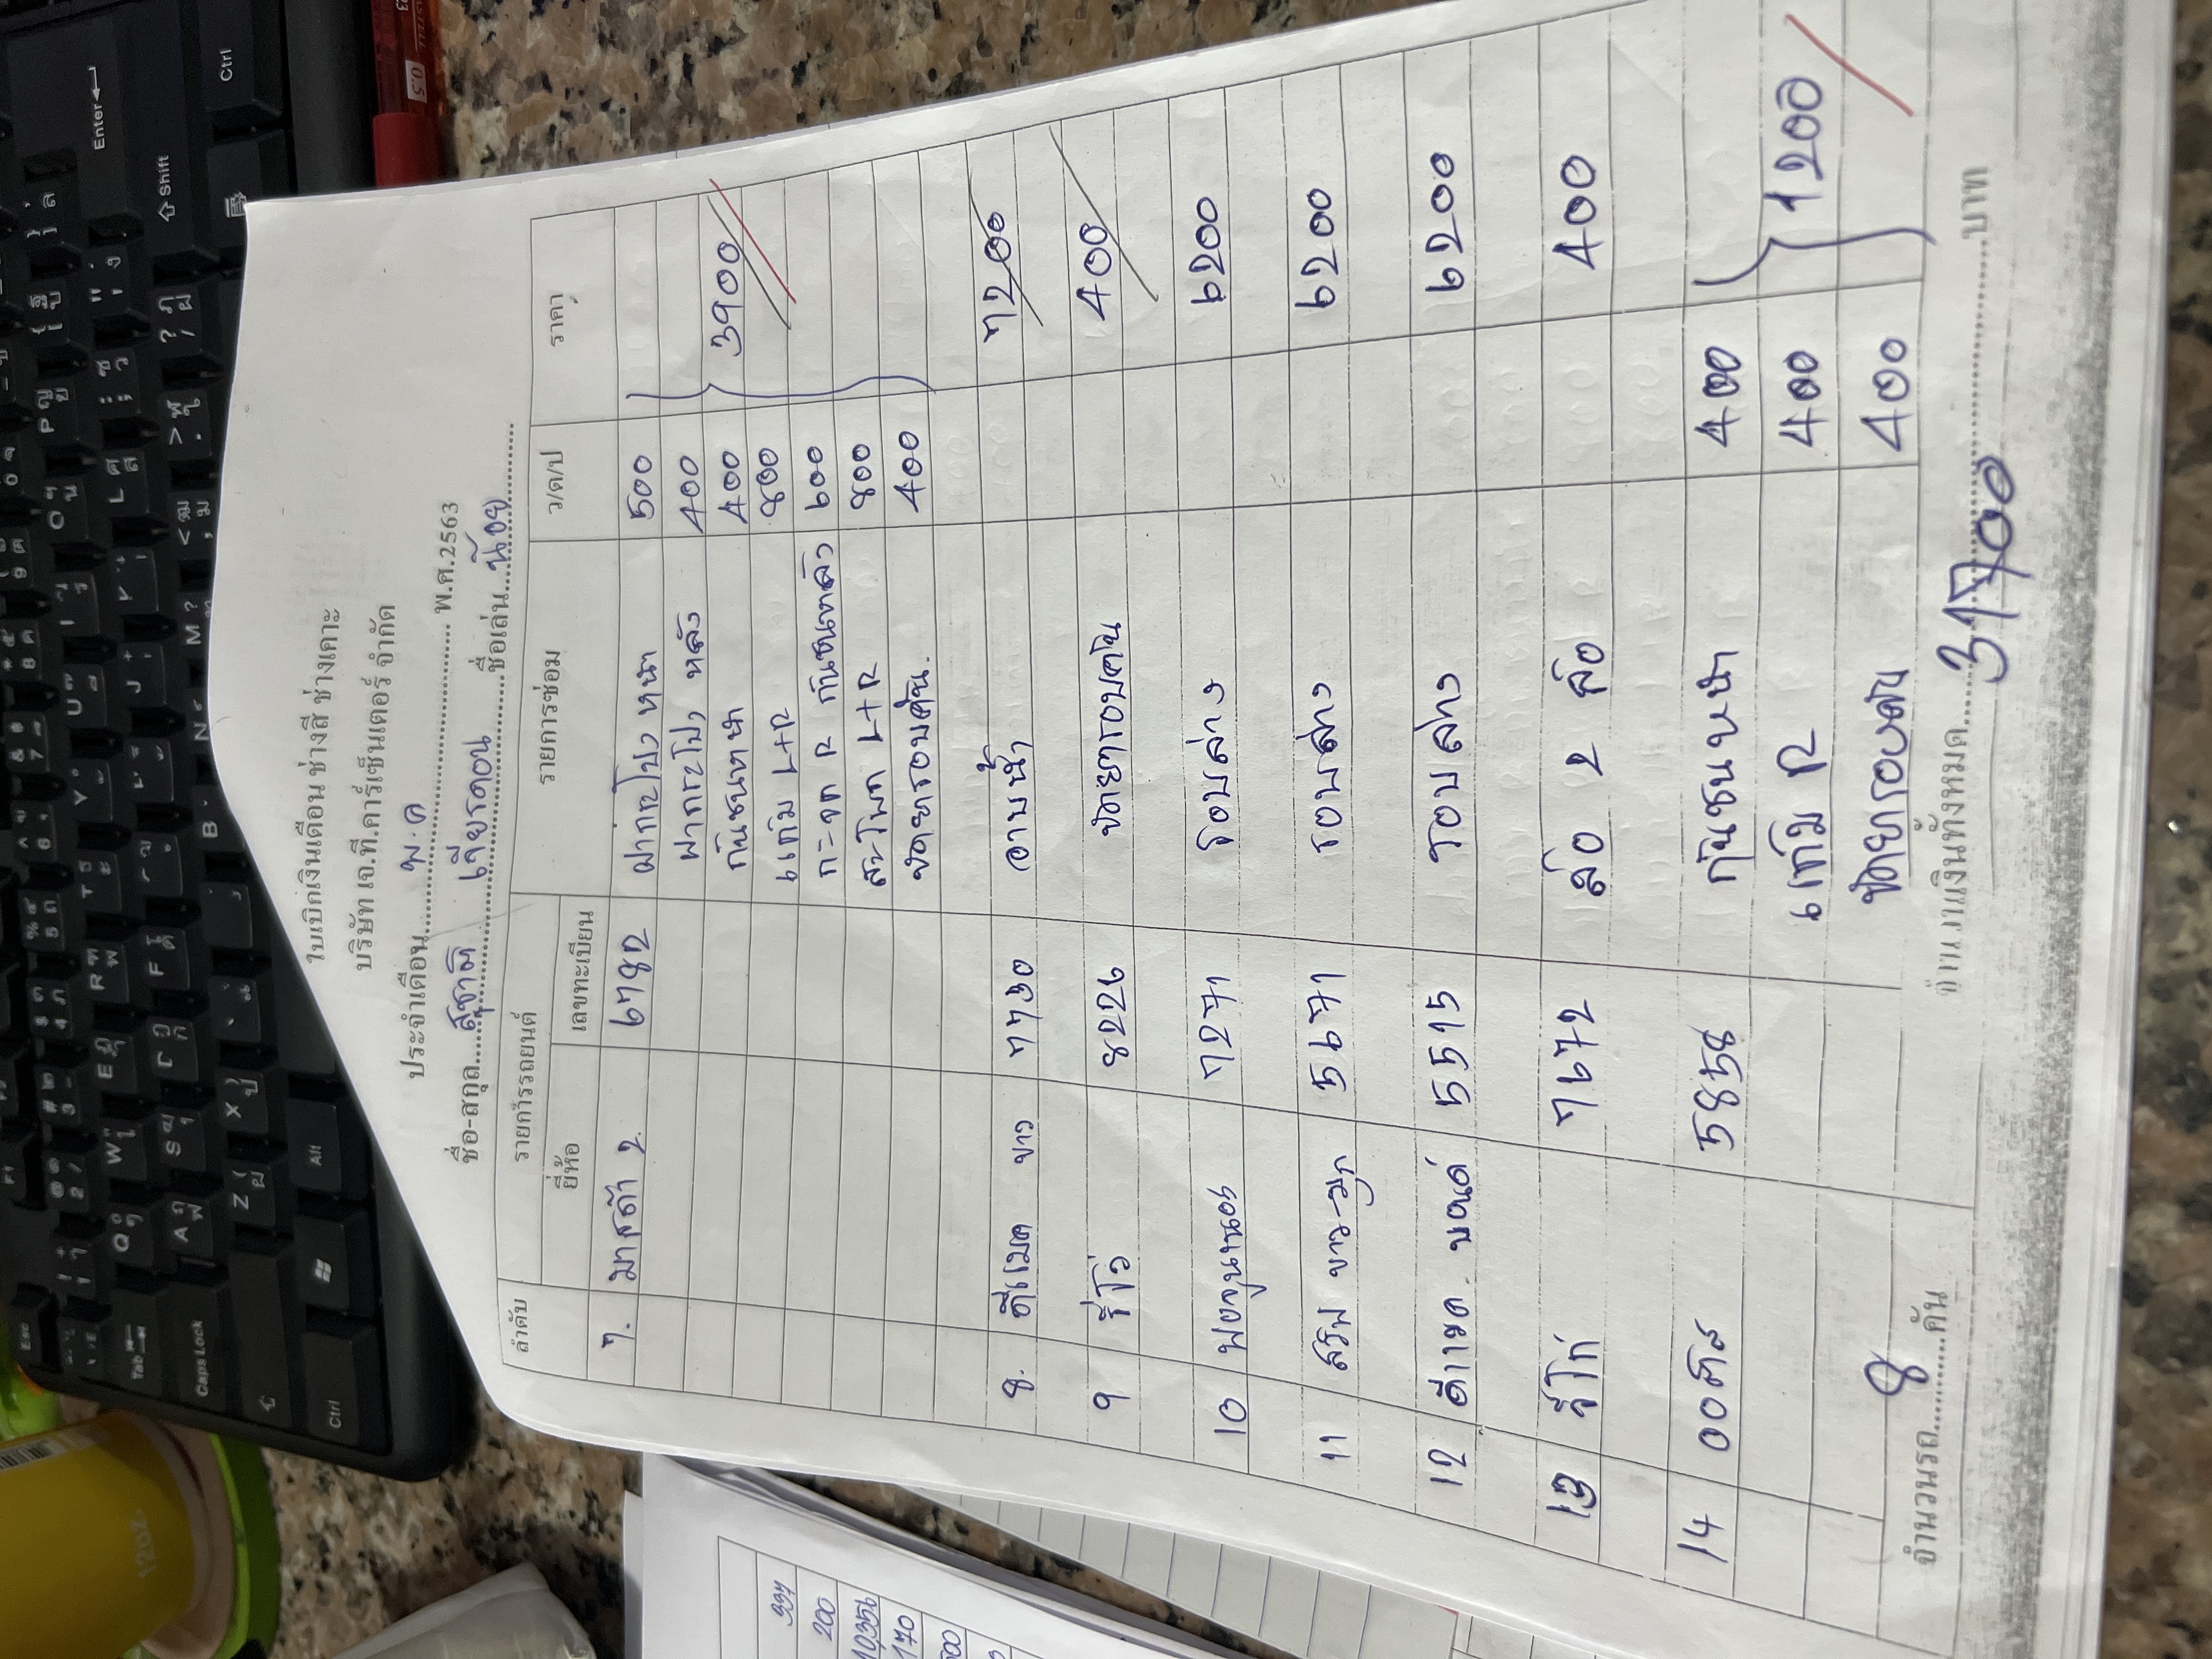 ใบเบิกเงินเดือน ช่างสี ช่างเคาะ
บริษัท เจ.ที.คาร์เซ็นเตอร์ จำกัด
ประจำเดือน พ.ค พ.ศ.2563
ชื่อ-สกุล สุชาติ เจียรดอน ชื่อเล่น น้อย
ลำดับ รายการรถยนต์ รายการซ่อม ว/ด/ป ราคา
ยี่ห้อ เลขทะเบียน
7. มาสด้า 2 6782 ฝากระโปรง หน้า 500
ฝากระโปรง หลัง 400
กันชนหน้า 400 3900
แก้ม L+R 800
กระจก R กันชนหลัง 600
สะโพก L+R 800
ขัดยกรอบคัน. 400
8. ดีแมค ขาว 7730 อาบน้ำ 7200
9 รีโว่ 8226 ขัดยกรอบคัน 400
10 7271 รอบล่าง 6200
11 ขาว-มุก 5671 รอบล่าง 6200
12 ดีแมค 5515 รอบล่าง 6200
13 รีโก่ 7672 ล้อ 2 ล้อ 400
14 5858 กันชนหน้า 400
แก้ม R 400 1200
ขัดยกรอบคัน 400
จำนวนรถ 8 คัน จำนวนเงินทั้งหมด 31700 บาท
337
200
10,356
170
Enter
Shift
Ctrl
Alt
Caps Lock
Tab
Esc
12oz.
0.5